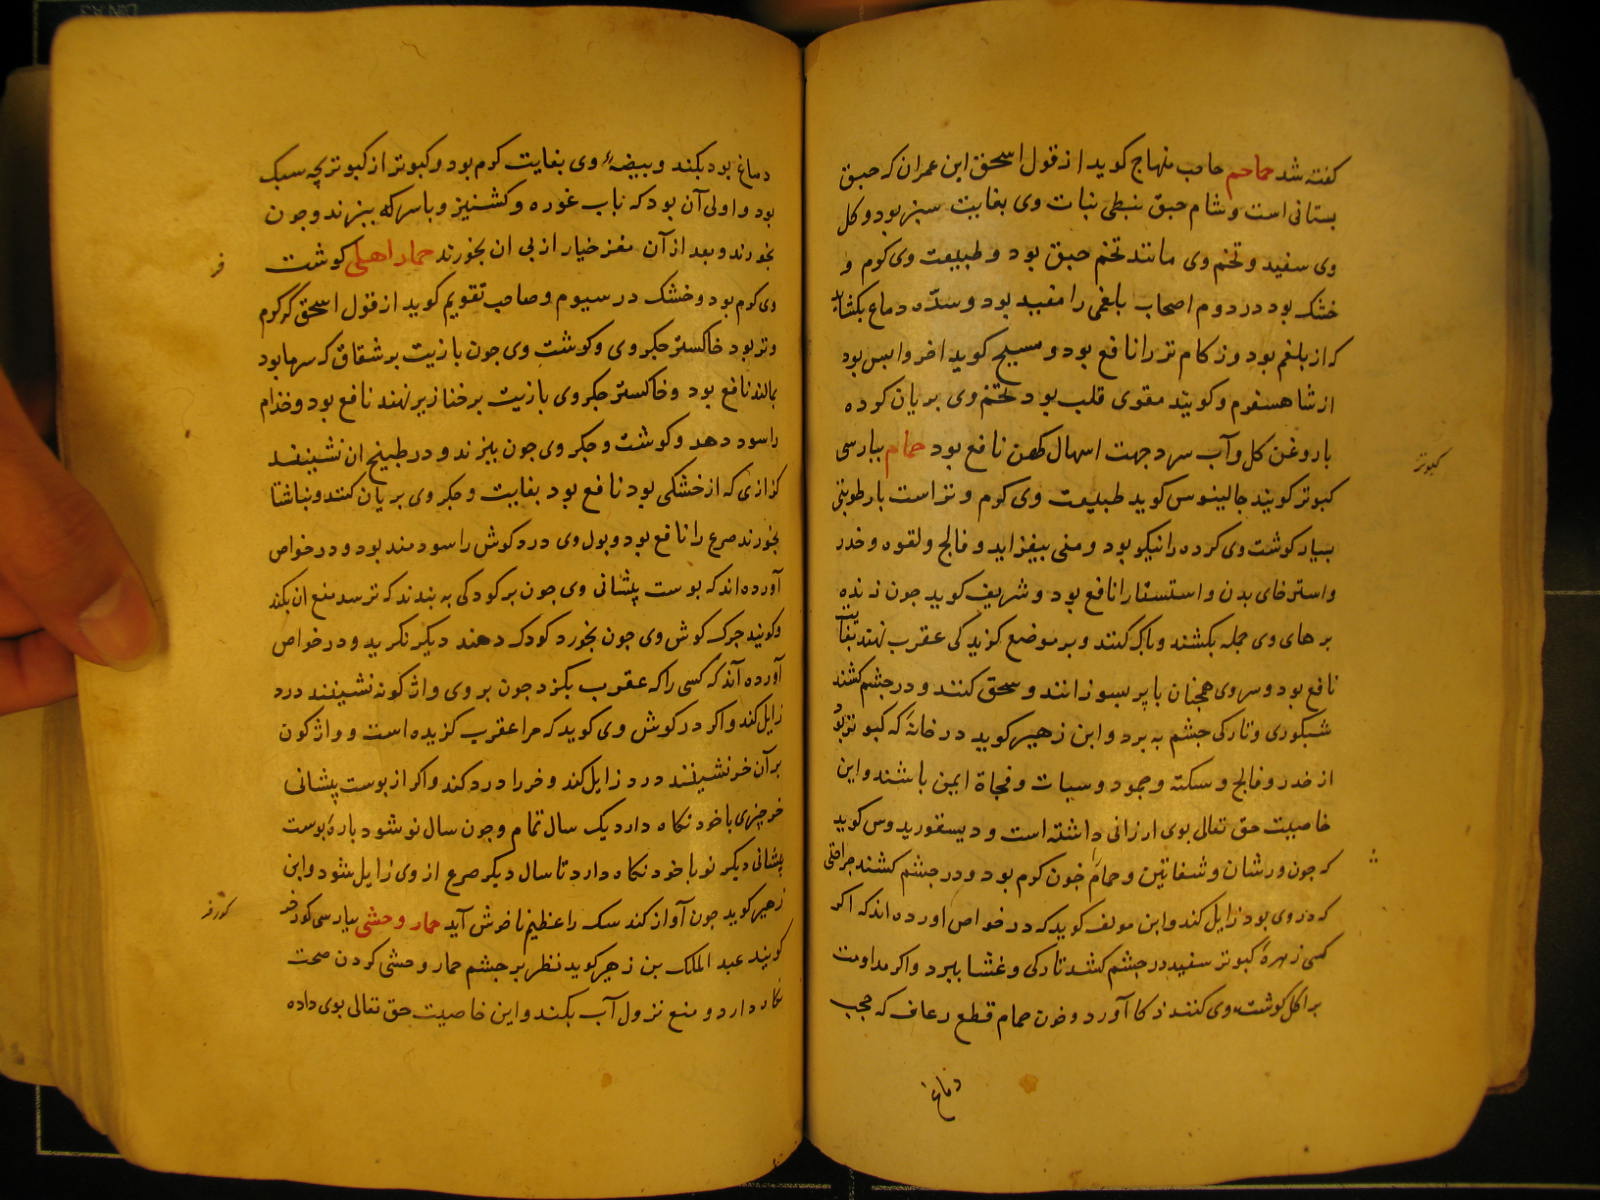 کفته شد حماحم صاحب منهاج کوید از قول اسحق ابن عمران که حبق
بستانی است و شام حبق نبطی نبات وی بغایت سبز بود و کل
وی سفید و تخم وی مانند تخم حبق بود و طبیعت وی کرم و
خشک بود در دوم اصحاب بلغمی را مفید بود و سدّه دماغ بکشاید
که از بلغم بود و زکام تر را نافع بود و مسیح کوید اخر وایبس بود
از شاهسفرم و کویند مقوی قلب بود تخم وی بریان کرده
با روغن کل و آب سرد جهت اسهال کهن نافع بود حمام بپارسی
کبوتر کویند جالینوس کوید طبیعت وی کرم و تر است با رطوبتی
بسیار کوشت وی کرده را نیکو بود و منی بیفزاید و فالج و لقوه و خدر
و استرخای بدن و استسقا را نافع بود و شریف کوید جون زنده
بر های وی جمله بکشند و پاک کنند و بر موضع کزیدکی عقرب نهند بغایت
نافع بود و سر وی همچنان با پر بسوزانند و سحق کنند و در جشم کشند
شبکوری و تارکی جشم به برد و ابن زهیر کوید در خانهٔ که کبوتر بود
از خدر و فالج و سکته و جمود و سبات و فجاة ایمن باشند و این
خاصیت حق تعالی بوی ارزانی داشته است و دیسقوریدوس کوید
که جون ورشان و شفانین و حمام خون کرم بود و در جشم کشند جراحتی
که در وی بود زایل کند و ابن مولف کوید که در خواص اورده اند که اکر
کسی زهرهٔ کبوتر سفید در جشم کشد تارکی و غشا ببرد و اکر مداومت
بر اکل کوشت وی کنند ذکا آورد و خون حمام قطع رعاف که حجب
دماغ
کبوتر
دماغ بود بکند و بیضهٔ وی بغایت کرم بود و کبوتر از کبوتر بچه سبک
بود و اولی آن بود که باب غوره و کشنیز و با سرکه بپزند و جون
بخورند و بعد از آن مغز خیار از پی ان بخورند حمار اهلی کوشت
وی کرم بود و خشک در سیوم و صاحب تقویم کوید از قول اسحق کرکرم
و تر بود خاکستر جکر وی و کوشت وی جون با زیت بر شقاق که سرما بود
بمالند نافع بود و خاکستر جکر وی با زیت بر خنازیر نهند نافع بود و جذام
را سود دهد و کوشت و جکر وی جون بپزند و در طبیخ ان نشینند
کزازی که از خشکی بود نافع بود بغایت و جکر وی بریان کنند و بناشتا
بخورند صرع را نافع بود و بول وی درد کوش را سودمند بود و در خواص
آورده اند که پوست پیشانی وی جون بر کودکی به بندند که ترسد منع ان بکند
و کویند جرک کوش وی جون بخورد کودک دهند دیکر نکرید و در خواص
آورده آند که کسی را که عقرب بکزد جون بر وی واژکونه نشینند درد
زایل کند و اکر در کوش وی کوید که مرا عقرب کزیده است و واژکون
بر آن خر نشینند درد زایل کند و خر را درد کند و اکر از پوست پیشانی
خر چیزی با خود نکاه دارد یک سال تمام و جون سال نو شود پارهٔ پوست
پیشانی دیکر نو با خود نکاه دارد تا سال دیکر صرع از وی زایل شود و ابن
زهیر کوید جون آواز کند سک را عظیم ناخوش آید حمار وحشی بپارسی کورخر
کویند عبد الملک بن زهیر کوید نظر بر جشم حمار وحشی کردن صحت
نکاه دارد و منع نزول آب بکند و این خاصیت حق تعالی بوی داده
خر
کورخر